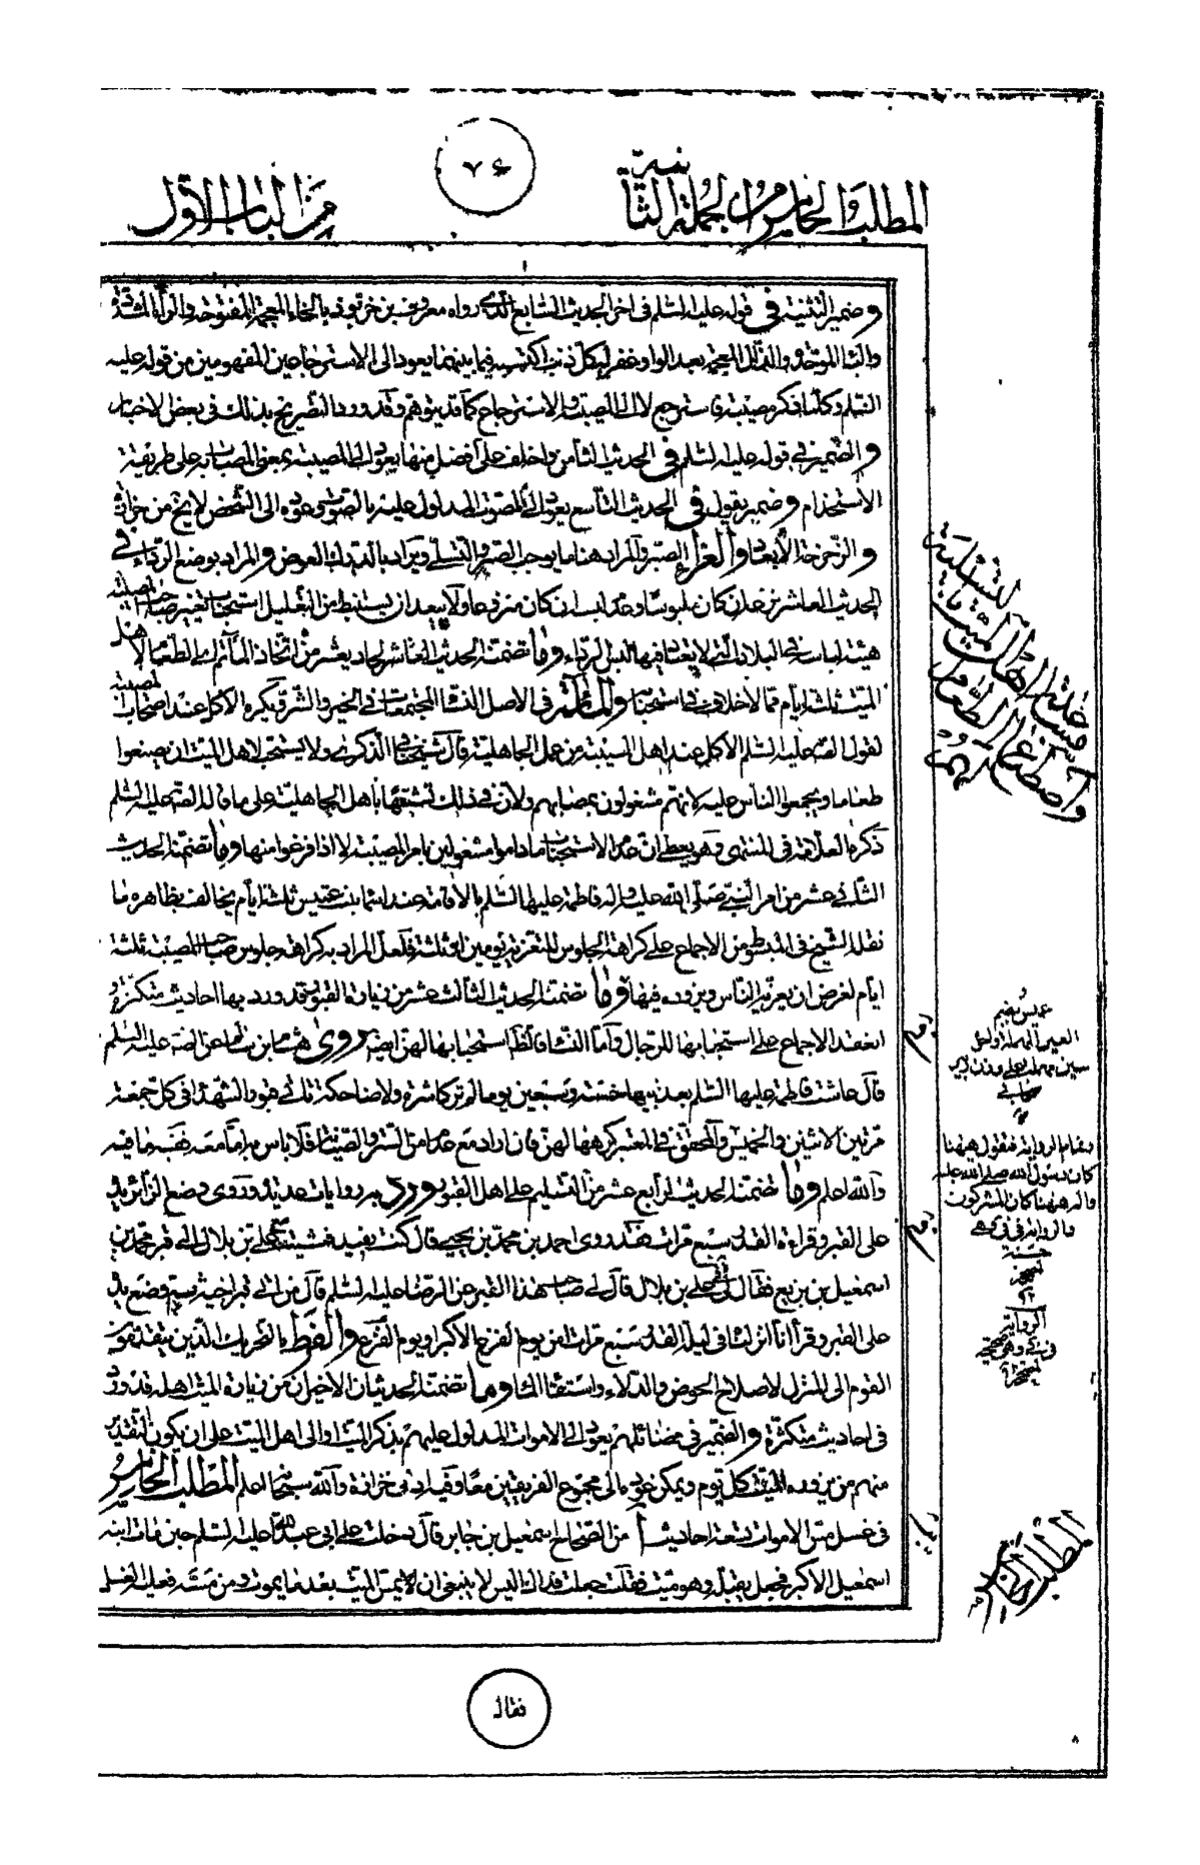 المطلب الخامس من الجملة الثانية
٧٤
من الباب الأول
وضمير التثنية في قوله عليه السلم في اخر الحديث السابع الذى رواه معروف بن خربوذ بالخاء المعجمة المفتوحة والراء المشددة
والباء الموحدة والذال المعجمة بعد الواو غفر له كل ذنب اكتسبه فيما بينهما يعود الى الاسترجاعين المفهومين من قوله عليه
السلم وكلما ذكر مصيبته فاسترجع لا الى المصيبة والاسترجاع كما قد يتوهم وقد ورد التصريح بذلك في بعض الاخبار
والضمير في قوله عليه السلم في الحديث الثامن واخلف على افضل منها يعود الى المصيبة بمعنى المصاب به على طريقة
الاستخدام وضمير يقول في الحديث التاسع يعود الى المصوت المدلول عليه بالصوت وعوده الى الشخص لا يخ من حزازة
والزحزحة الابعاد والعزاء الصبر والمراد هنا ما يوجب الصبر والتسلى ويراد بالدرك العوض والمراد بوضع الرداء في
الحديث العاشر نزعه ان كان ملبوسا وعدم لبسه ان كان منزوعا ولا يبعد ان يستنبط من التعليل استحباب تغيير صاحب المصيبة
هيئة لباسه في البلاد التي لا يعتاد فيها لبس الرداء وما تضمنه الحديث العاشر والحاديعشر من اتخاذ المأتم اى الطعام لاهل
الميت ثلثة ايام مما لا خلاف في استحبابه والمأتم في الاصل النساء المجتمعات في الخير والشر ويكره الاكل عند اصحاب المصيبة
لقول الصه عليه السلم الاكل عند اهل المصيبة من عمل الجاهلية قال شيخنا في الذكرى ولا يستحب لاهل الميت ان يصنعوا
طعاما ويجمعوا الناس عليه لانهم مشغولون بمصابهم ولان في ذلك تشبها باهل الجاهلية على ما قاله الصه عليه السلم
ذكره العلامة في المنتهى وهو يعطى ان عدم الاستحباب ما داموا مشغولين بامر المصيبة لا اذا فرغوا منها وما تضمنه الحديث
الثاني عشر من امر النبي صلى الله عليه واله فاطمة عليها السلم بالاقامة عند اسما بنت عميس ثلثة ايام يخالف بظاهره ما
نقله الشيخ في المبسوط من الاجماع على كراهة الجلوس للتعزية يومين او ثلثة فلعل المراد بكراهة جلوس صاحب المصيبة ثلثة
ايام لغرض ان يعزيه الناس ويزوره فيها وما تضمنه الحديث الثالث عشر من زيارة القبور قد ورد بها احاديث متكثرة و
انعقد الاجماع على استحبابها للرجال واما النساء فالظ استحبابها لهن ايضا روى هشام بن سالم عن الصه عليه السلم
قال عاشت فاطمة عليها السلم بعد ابيها خمسة وسبعين يوما لم تر كاشرة ولا ضاحكة تاتي قبور الشهداء في كل جمعة
مرتين الاثنين والخميس والمحقق في المعتبر كرهها لهن فان اراد مع عدم امن الستر والصيانة فلا باس به اما معه ففيه ما فيه
والله اعلم وما تضمنه الحديث الرابع عشر من التسليم على اهل القبور ورد به روايات عديدة وروى وضع الزائر يده
على القبر وقراءة القدر سبع مرات فقد روى احمد بن محمد بن يحيى قال كنت بفيد فمشيت مع على بن بلال الى قبر محمد بن
اسمعيل بن بزيع فقال لى على بن بلال قال لى صاحب هذا القبر عن الرضا عليه السلم قال من اتى قبر اخيه ثم وضع يده
على القبر وقرأ انا انزلناه في ليلة القدر سبع مرات امن يوم الفزع الاكبر او يوم الفزع والفرط بالتحريك الذين يتقدمون
القوم الى المنزل لاصلاح الحوض والدلاء واستقاء الماء وما تضمنه الحديثان الاخيران من زيارة الميت اهله قد ورد
في احاديث متكثرة والضمير في فضائلهم يعود الى الاموات المدلول عليهم بذكر الميت او الى اهل الميت على ان يكون التقدير
منهم من يزوره الميت كل يوم ويمكن عوده الى مجموع الفريقين معا وفيه ادنى حزازة والله سبحانه اعلم المطلب الخامس
في غسل مس الاموات تسعة احاديث ا من الصحاح اسمعيل بن جابر قال دخلت على ابى عبد الله عليه السلم حين مات ابنه
اسمعيل الاكبر فجعل يقبله وهو ميت فقلت جعلت فداك اليس لا ينبغي ان يمس الميت بعد ما يموت ومن مسه فعليه الغسل
فقال
واصطناع الطعام
لهم
عميس بضم
العين المهملة واخره
سين مهملة على وزن زبير
صحابي
كان رسول الله صلى الله عليه
واله
المطلب الخامس